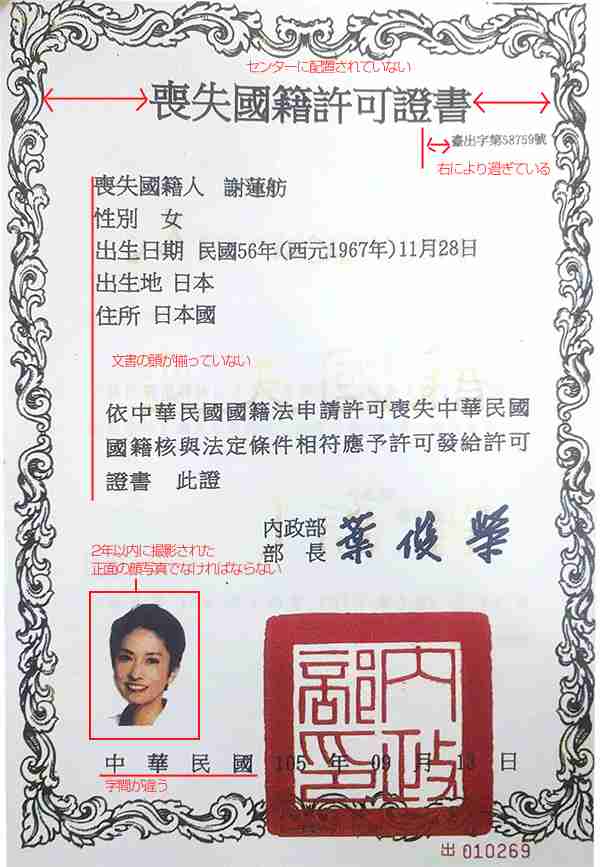 センターに配置されていない
喪失國籍許可證書
臺出字第58759號
右により過ぎている
喪失國籍人 謝蓮舫
性別 女
出生日期 民國56年(西元1967年)11月28日
出生地 日本
住所 日本國
文書の頭が揃っていない
依中華民國國籍法申請許可喪失中華民國
國籍核與法定條件相符應予許可發給許可
證書 此證
內政部
部長 葉俊榮
2年以内に撮影された
正面の顔写真でなければならない
內政部印
中華民國 105 年 09 月 13 日
字間が違う
出 010269